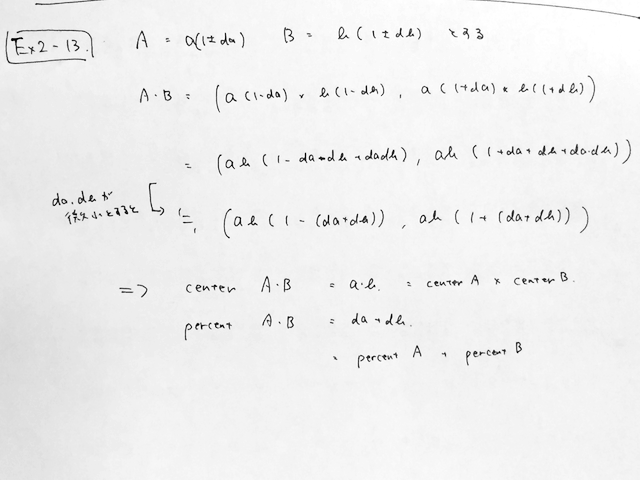 Ex2-13. A = a(1±da) B = b(1±db) とする
A・B = (a(1-da) × b(1-db), a(1+da) × b(1+db))
= (ab(1-da-db+dadb), ab(1+da+db+da・db))
da, dbが
微小とすると ≒ (ab(1-(da+db)), ab(1+(da+db)))
=> center A・B = a・b. = center A × center B.
percent A・B = da+db.
= percent A + percent B